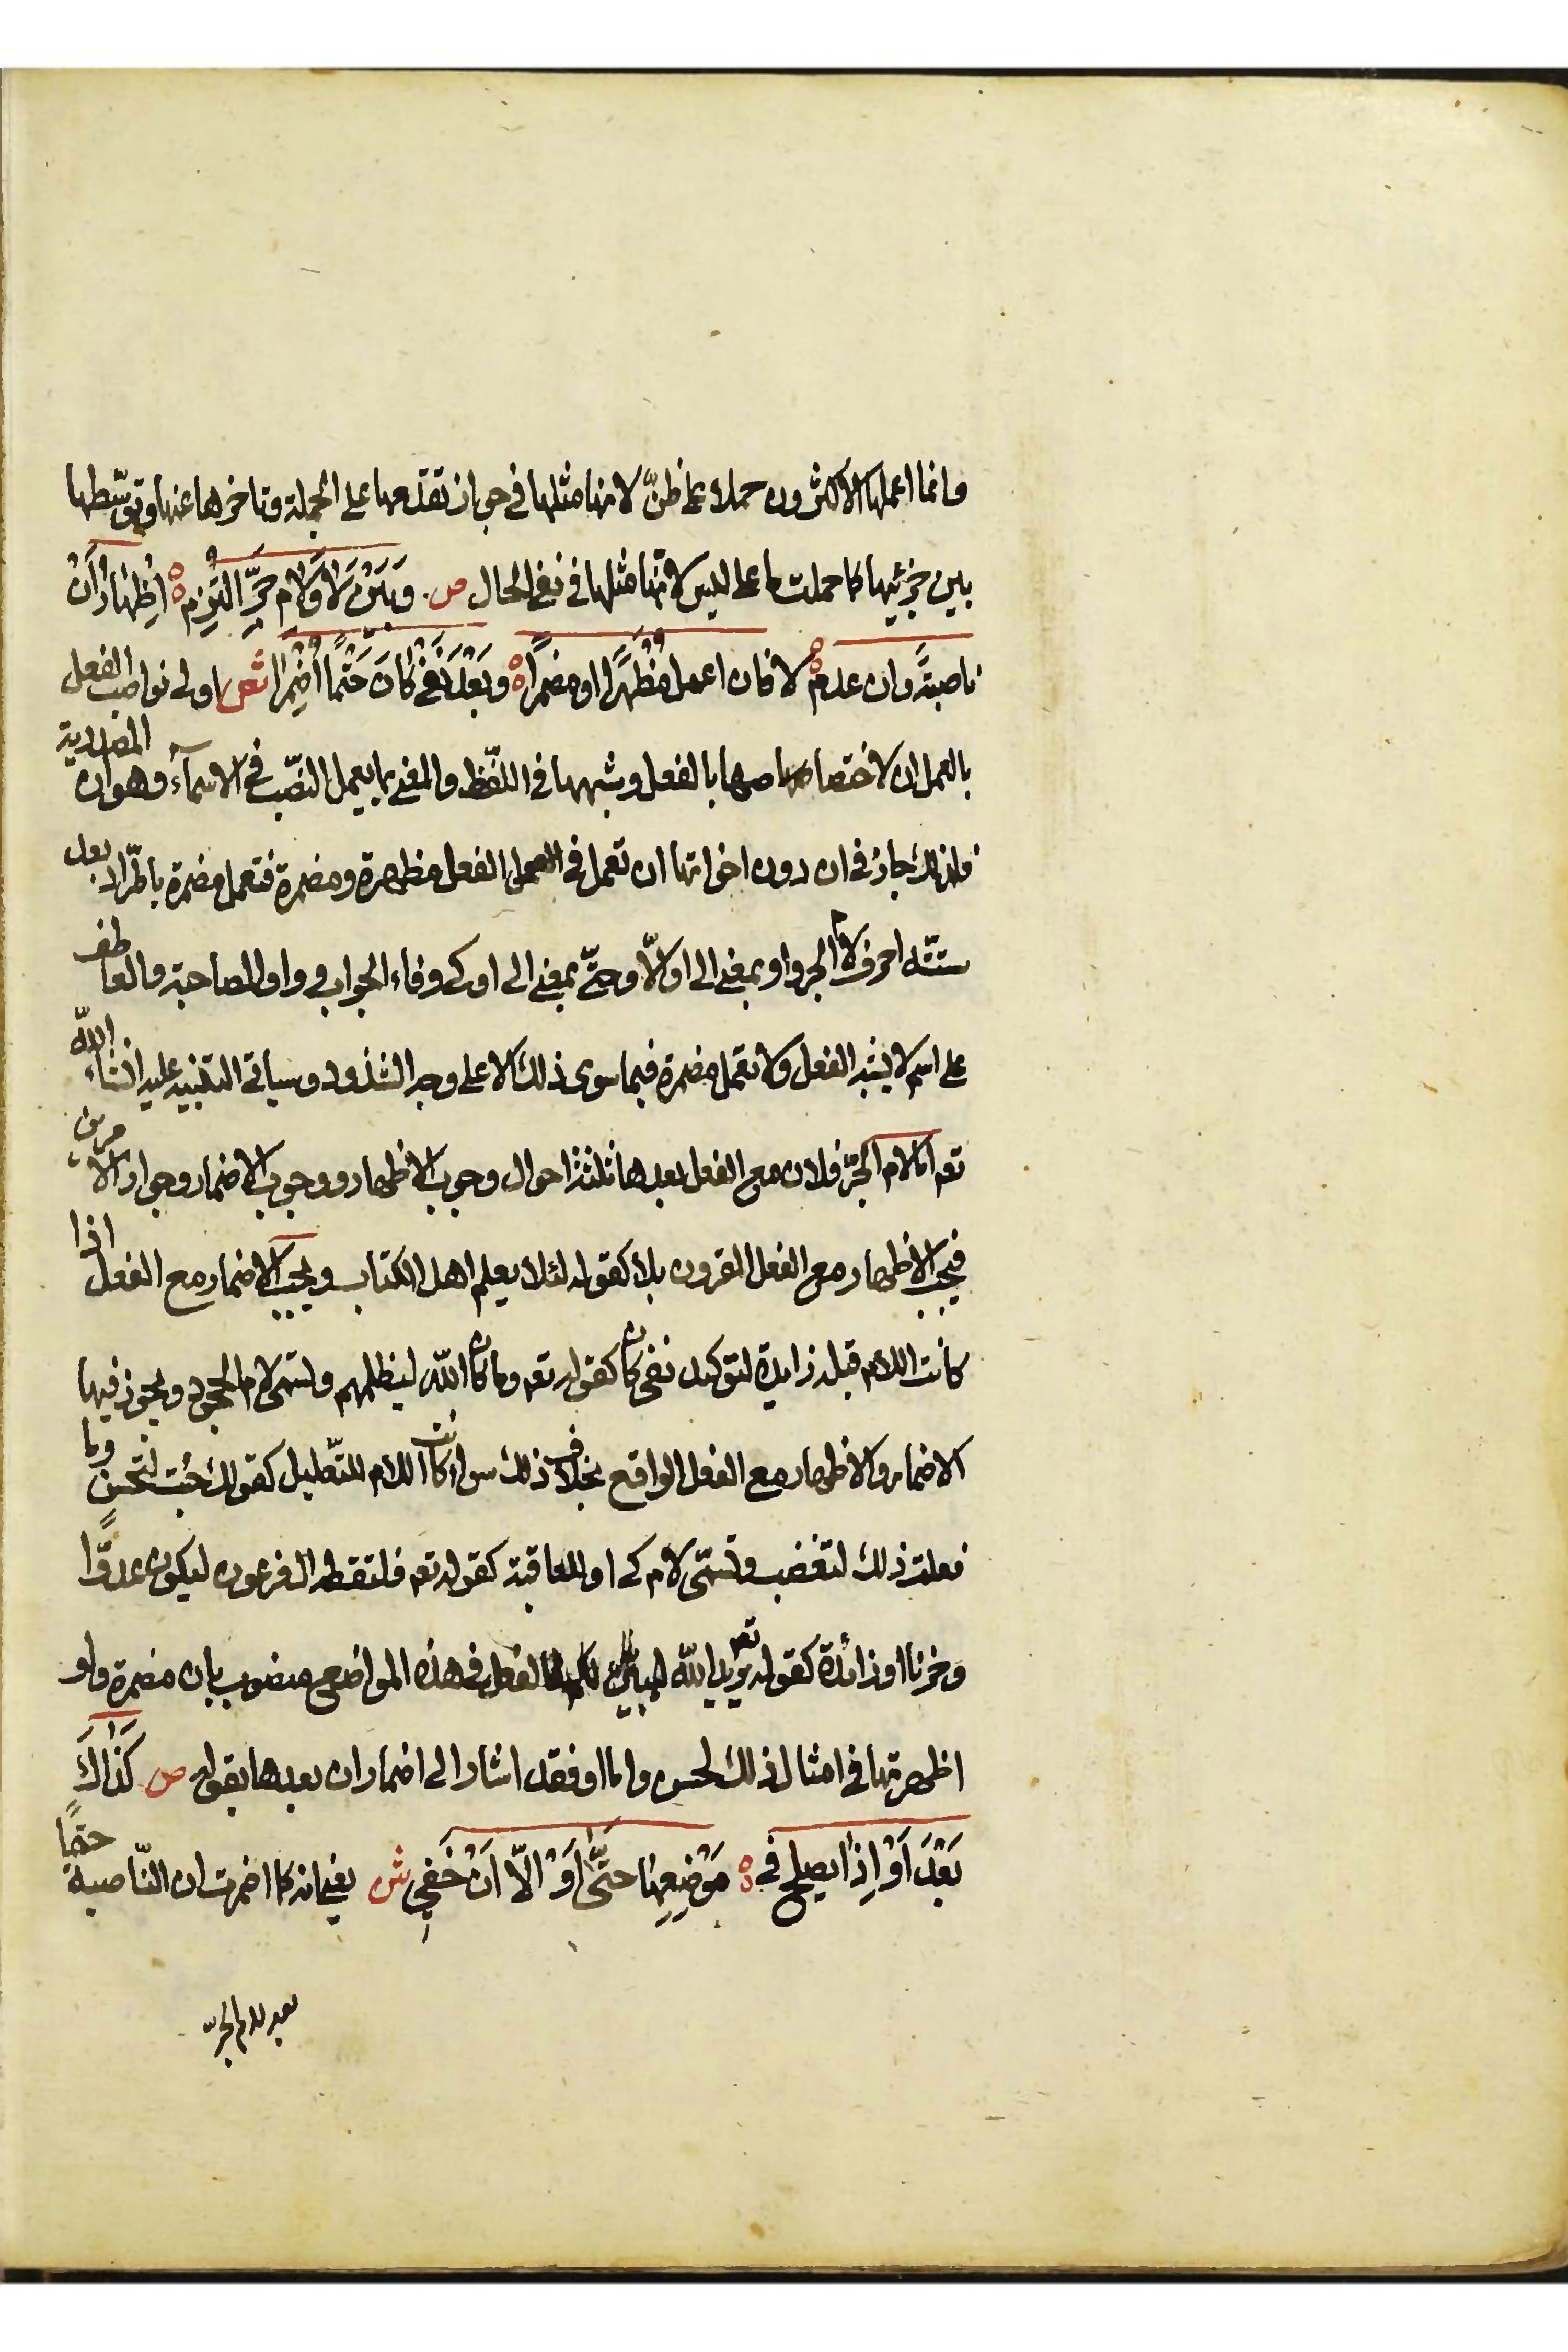 وانما اعملها الاكثرون حملا على ظنّ لانها مثلها في جواز تقدمها على الجملة وتاخرها عنها وتوسّطها
بين جزئيها كما حملت ما على ليس لانّها مثلها في نفي الحال ص وَبَيْنَ لَا وَلَامِ جَرٍّ التُزِمْ ه اِظْهَارُ اَنْ
ناصبَةً وان عدم ه لا فان اعمل مُظْهَرًا او مضمرًا ه وَبَعْدَ نَفْيِ كَانَ حَتْمًا اُضْمِرَا ش اولى نواصب الفعل
بالعمل ان لاختصاصها بالفعل وشبهها في اللّفظ والمعنى بما يعمل النّصب في الاسمآء وهو ان المصدرية
فلذلك جاز في ان دون اخواتها ان تعمل في الفعل مظهرة ومضمرة فتعمل مضمرة باطّراد بعد
ستّة احرف لام الجر واو بمعنى الى او الّا وحتّى بمعنى الى او كى وفاء الجواب وواو المصاحبة والعاطف
على اسم لا يشبه الفعل ولا تعمل مضمرة فيما سوى ذلك الا على وجه الشذوذ وسياتي التنبيه عليه انشاء اللّه
تع اما لام الجرّ فلان مع الفعل بعدها ثلثة احوال وجوب الاظهار ووجوب الاضمار وجواز الامرين
فيجب الاظهار مع الفعل المقرون بلا كقوله لئلا يعلم اهل الكتاب ويجب الاضمار مع الفعل اذا
كانت اللام قبله زايدة لتوكيد نفى كان كقوله تع وما كان اللّه ليظلمهم وتسمى لام الجحود ويجوز فيها
الاضمار والاظهار مع الفعل الواقع بخلاف ذلك سواء كانت اللام للتّعليل كقولك جئت لتحسن وما
فعلت ذلك لتغضب وتسمّى لام كى او للعاقبة كقوله تع فالتقطه ال فرعون ليكون عدوًّا
وحزنا او زائدة كقوله تع يريد اللّه ليبين لكم فالفعل في هذه المواضع منصوب بان مضمرة ولو
اظهرتها في امثال ذلك لحسن واما او فقد اشار الى اضمار ان بعدها بقوله ص كَذَاكَ
بَعْدَ اَوْ اِذَا يصلح في ه مَوْضِعِهَا حتَّى اَوْ الّا اَنْ خَفِي ش يعني انه كما اضمرت ان النّاصبة حتمًا
بعد لام الجرّ